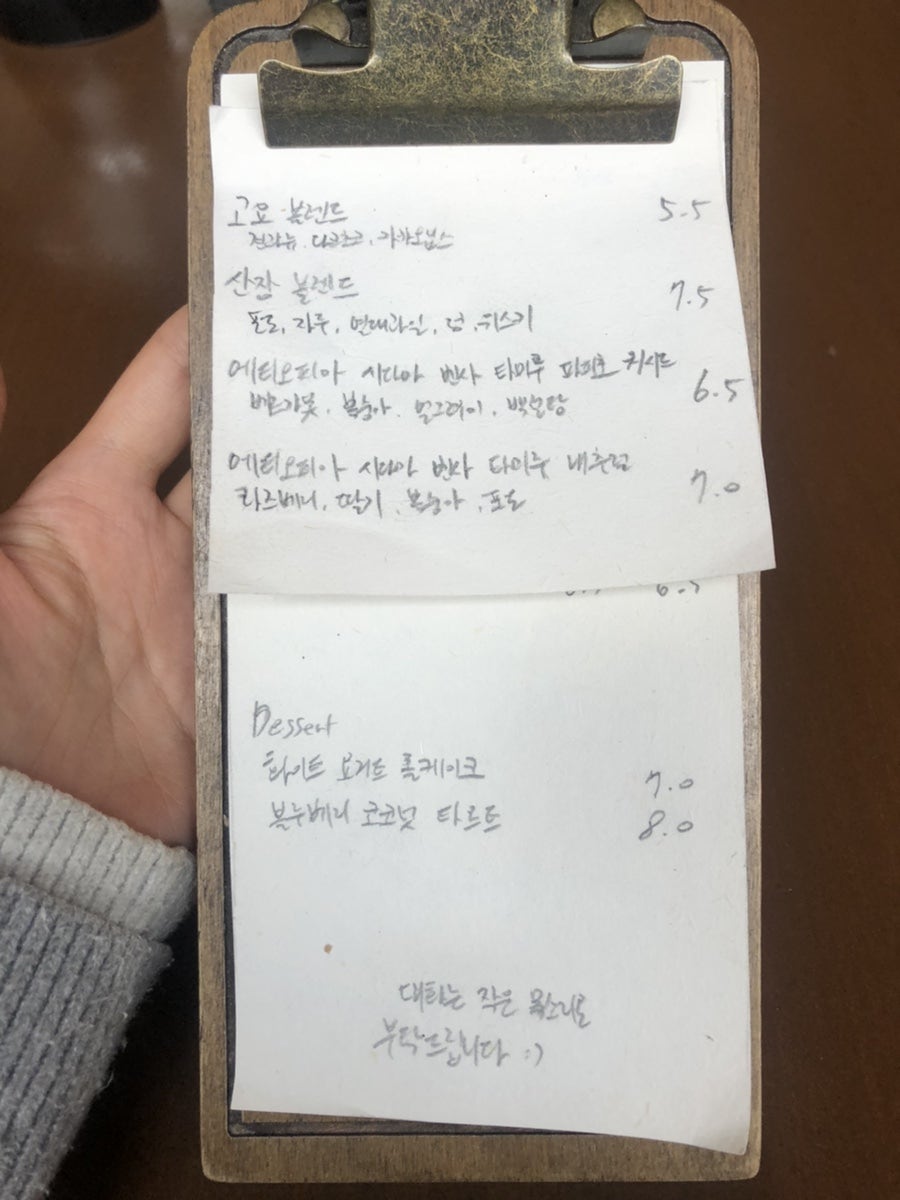 고요 블렌드 5.5
견과류, 다크초코, 카카오닙스
산장 블렌드 7.5
포도, 자두, 열대과일, 럼, 위스키
에티오피아 시다마 벤사 타미루 파피초 워시드 6.5
베르가못, 복숭아, 얼그레이, 백설탕
에티오피아 시다마 벤사 타미루 내추럴 7.0
라즈베리, 딸기, 복숭아, 포도
Dessert
화이트 요거트 롤케이크 7.0
블루베리 코코넛 타르트 8.0
대화는 작은 목소리로
부탁드립니다 :)